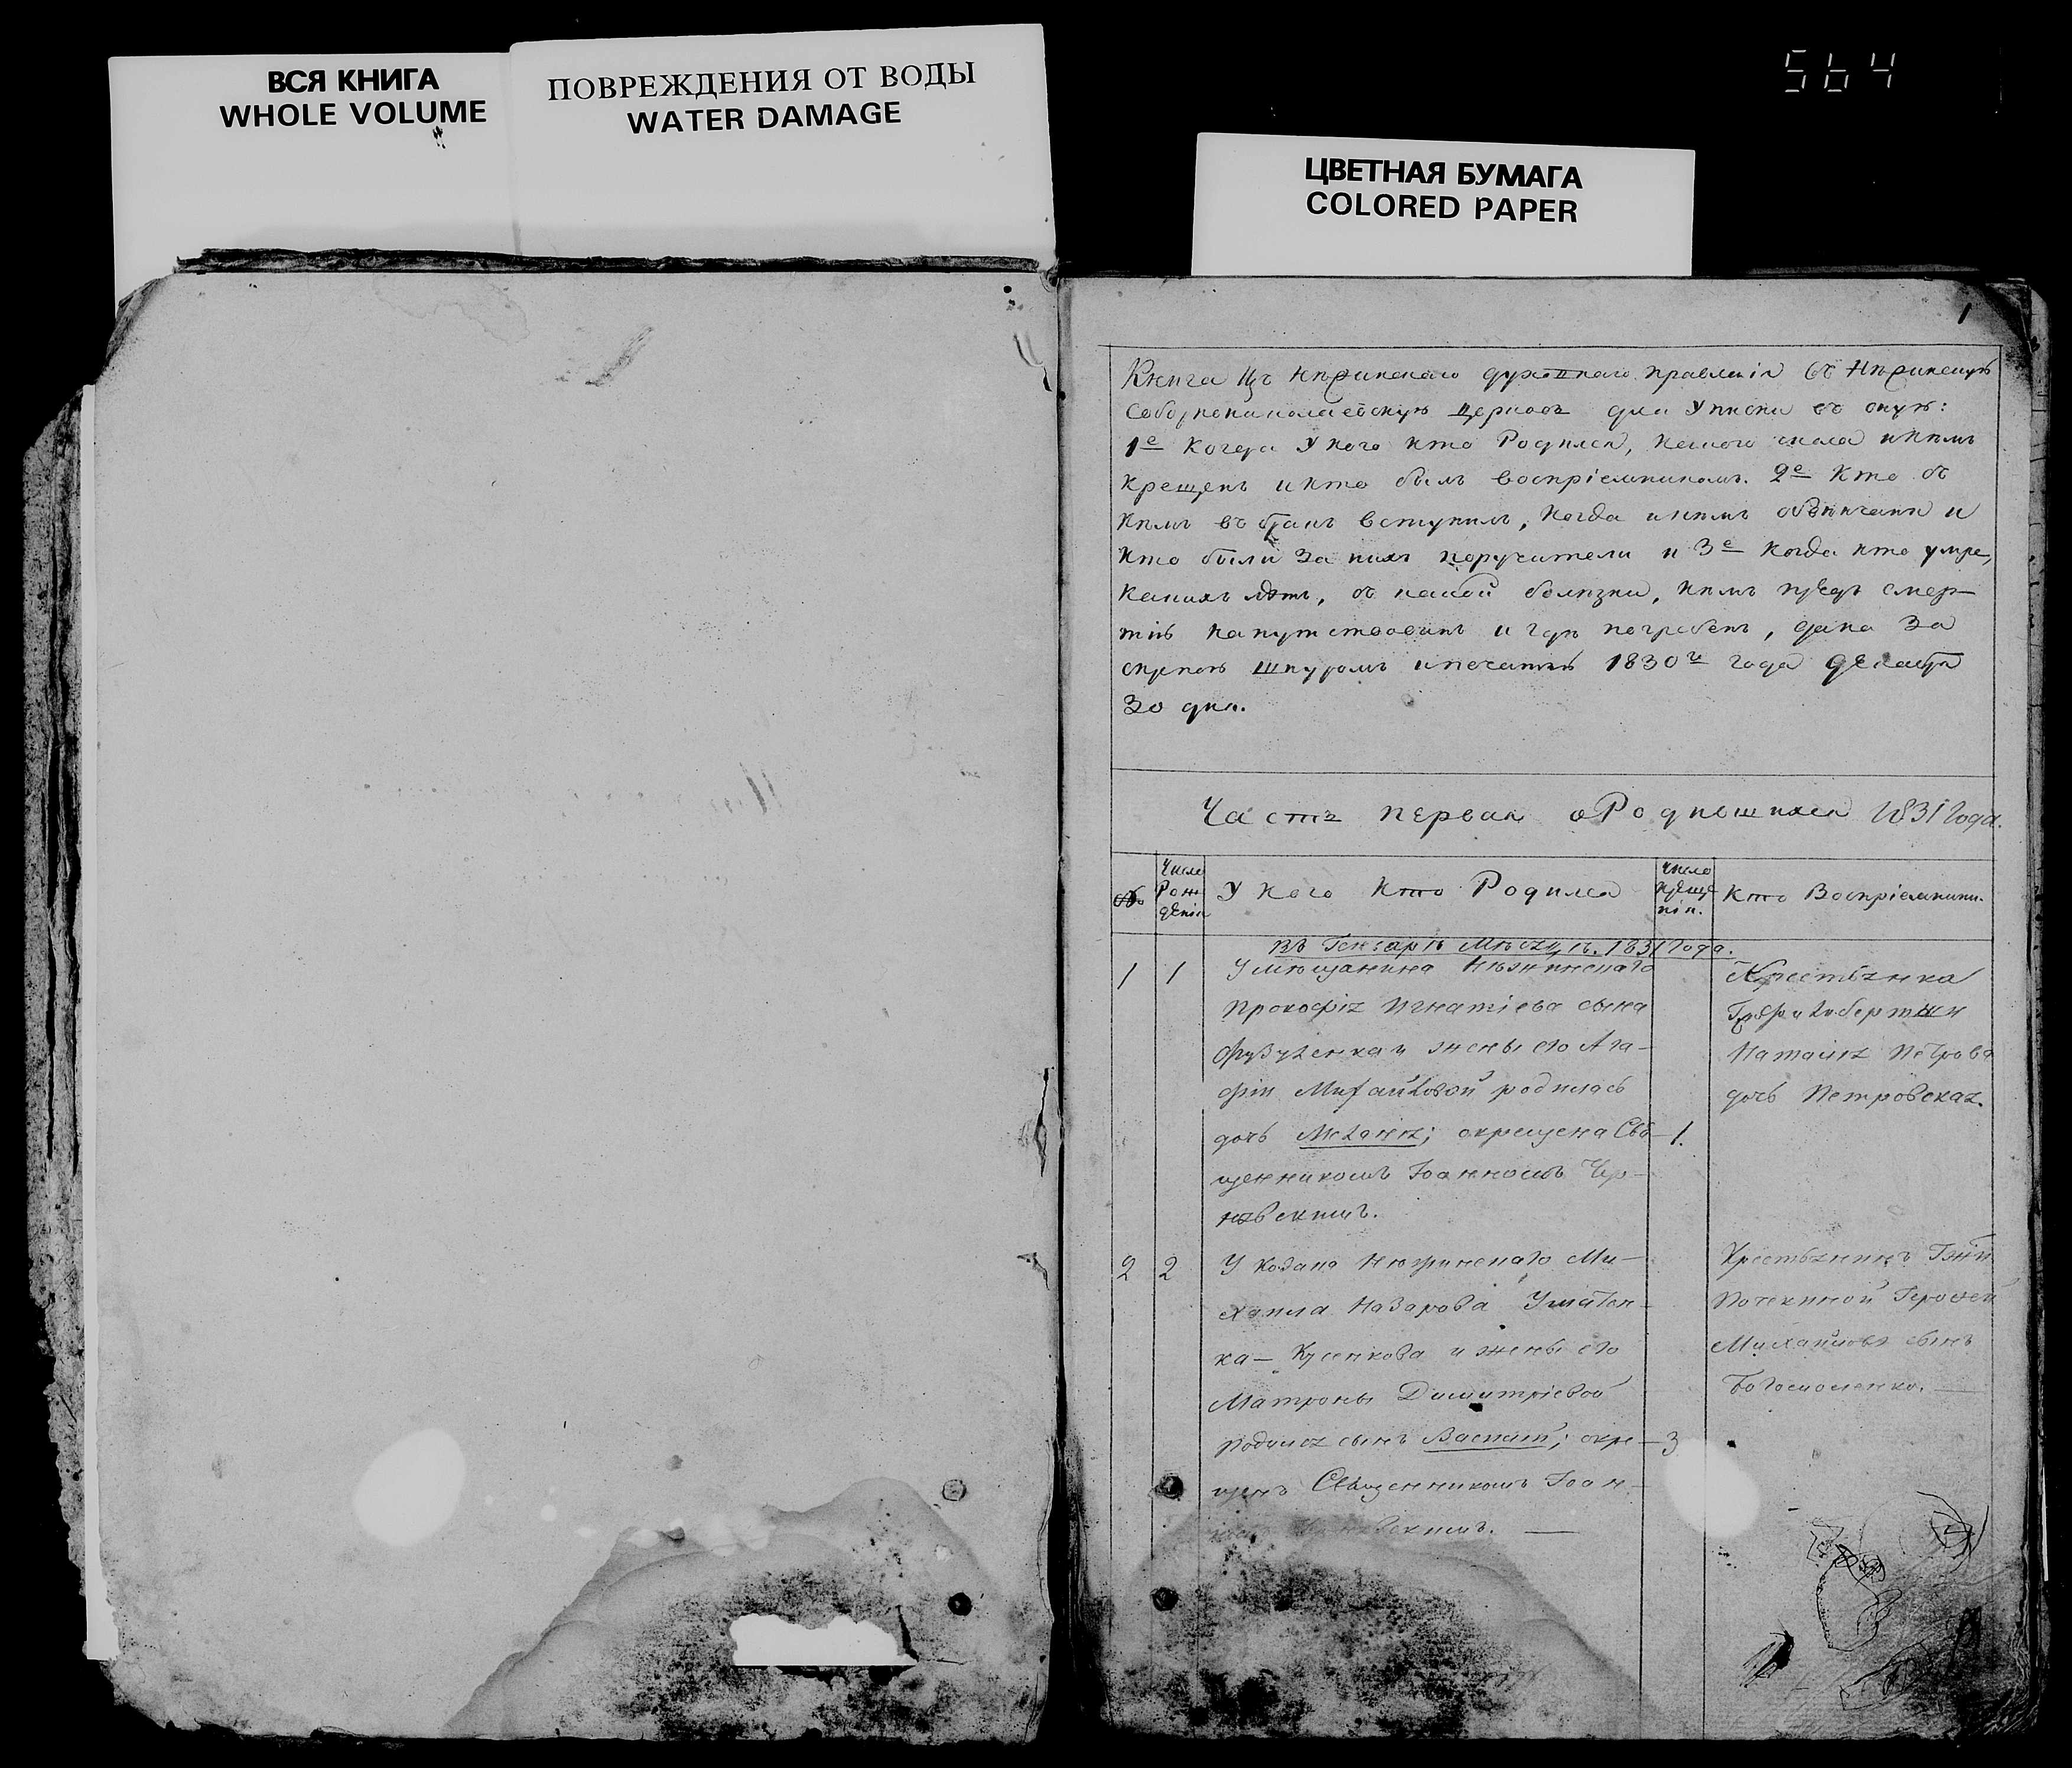 ВСЯ КНИГА
WHOLE VOLUME
ПОВРЕЖДЕНИЯ ОТ ВОДЫ
WATER DAMAGE
564
ЦВЕТНАЯ БУМАГА
COLORED PAPER
1
Книга Изъ Нѣжинскаго духовнаго правленія въ Нѣжинскую
Соборнониколаевскую церковь для Уписки въ оную:
1е Когда У кого кто Родился, числа и кѣмъ
крещенъ и кто былъ воспріемникомъ. 2е Кто съ
кѣмъ въ бракъ вступилъ, когда и кѣмъ обвѣнчаны и
кто были За нихъ поручители и 3е Когда кто умре,
какихъ лѣтъ, отъ какой болѣзни, кѣмъ предъ смер-
тію напутствованъ и гдѣ погребенъ, дана За
скрепою шнуромъ и печатью 1830го года Декабря
30 дня.
Часть первая о Родившихся 1831 Года.
Число Рожденія
У Кого Кто Родился
Число Крещенія.
Кто Воспріемники.
Въ Генварѣ Мѣсяцѣ. 1831 года.
1 1 У мѣщанина Нѣжинскаго
Прокофія Игнатіева сына
и жены его Ага-
фіи Михайловой родилась
дочь Меланія; окрещена Свя- 1.
щенникомъ Іоанномъ Чер-
нявскимъ.
Крестьянка
Наталія Петрова
дочь Петровская.
2 2 У Козака Нѣжинскаго Ми-
хаила Назарова
ка- Кусенкова и жены его
Матроны Димитріевой
родился сынъ Василій; окре- 3
щенъ Священникомъ Іоан-
Крестьянинъ Гжи
Михайловъ сынъ
Богомоленко.